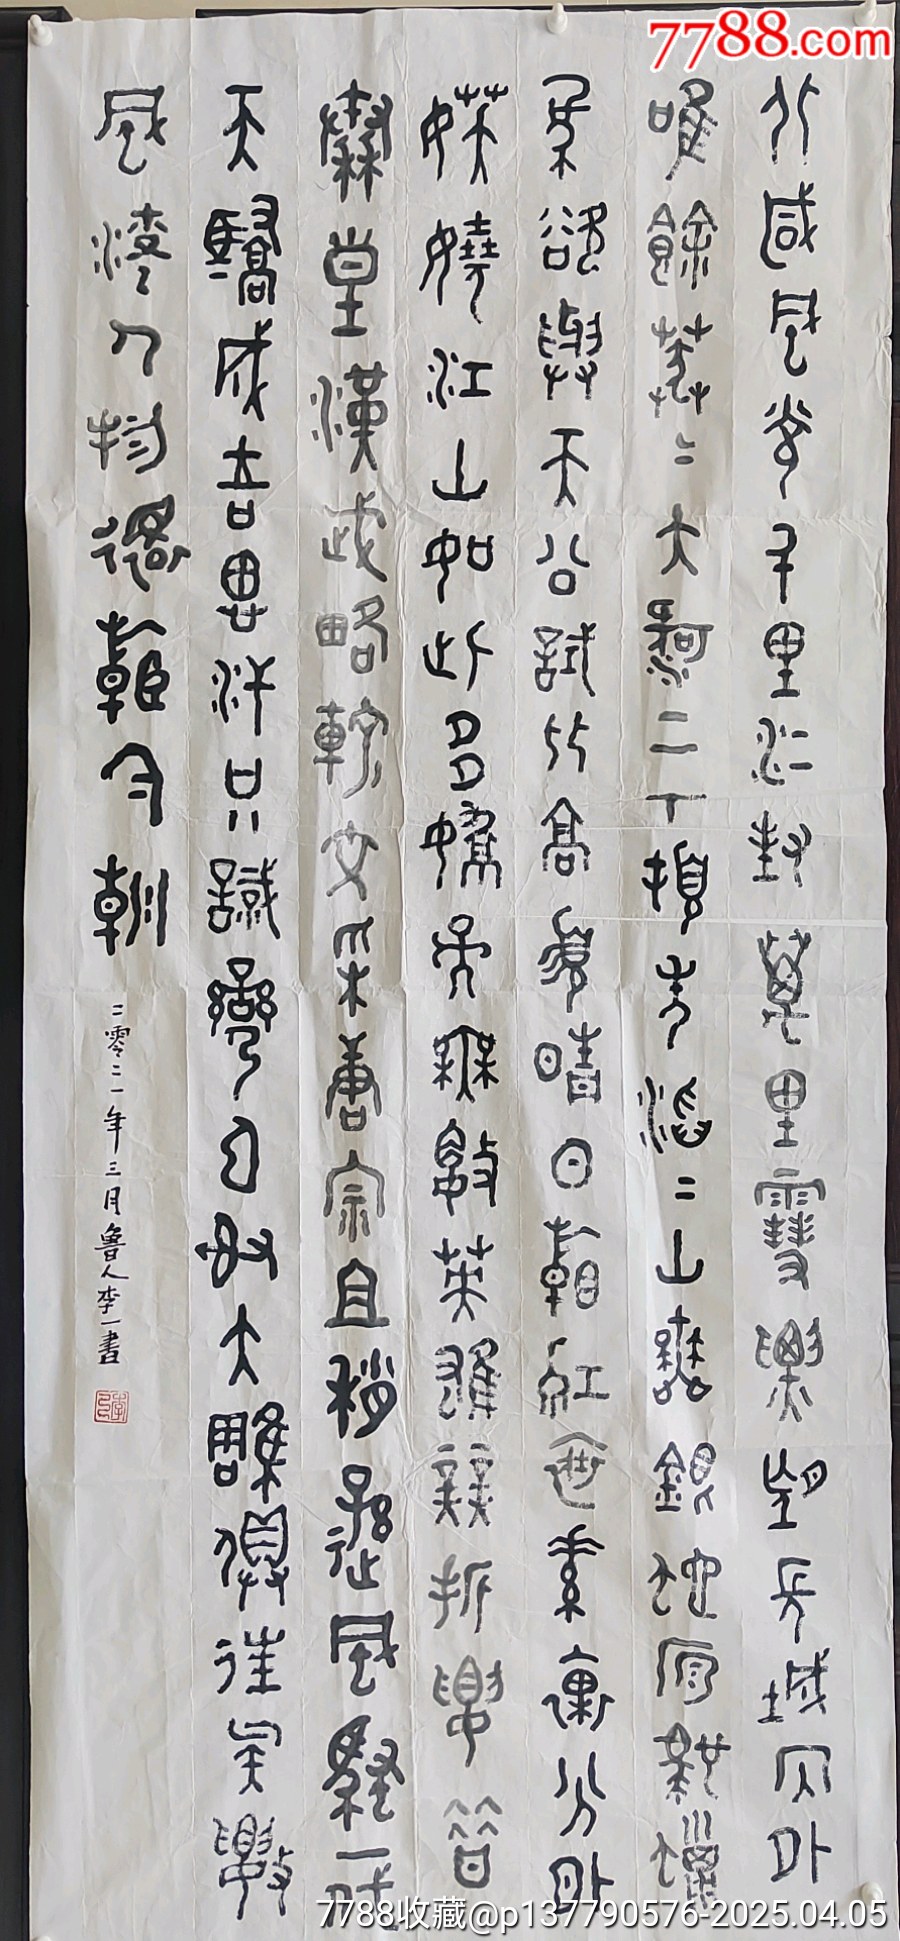 北國風光千里冰封萬里雪飄望長城内外
唯餘莽二大河上下頓失滔二山舞銀蛇原馳蠟
象欲與天公試比高須晴日看紅裝素裹分外
妖嬈江山如此多嬌引無數英雄競折腰惜
秦皇漢武略輸文采唐宗且稍遜風騷一代
天驕成吉思汗只識彎弓射大雕俱往矣數
風流人物還看今朝
二零二一年三月魯人李一書
7788.com
7788收藏@p137790576-2025.04.05